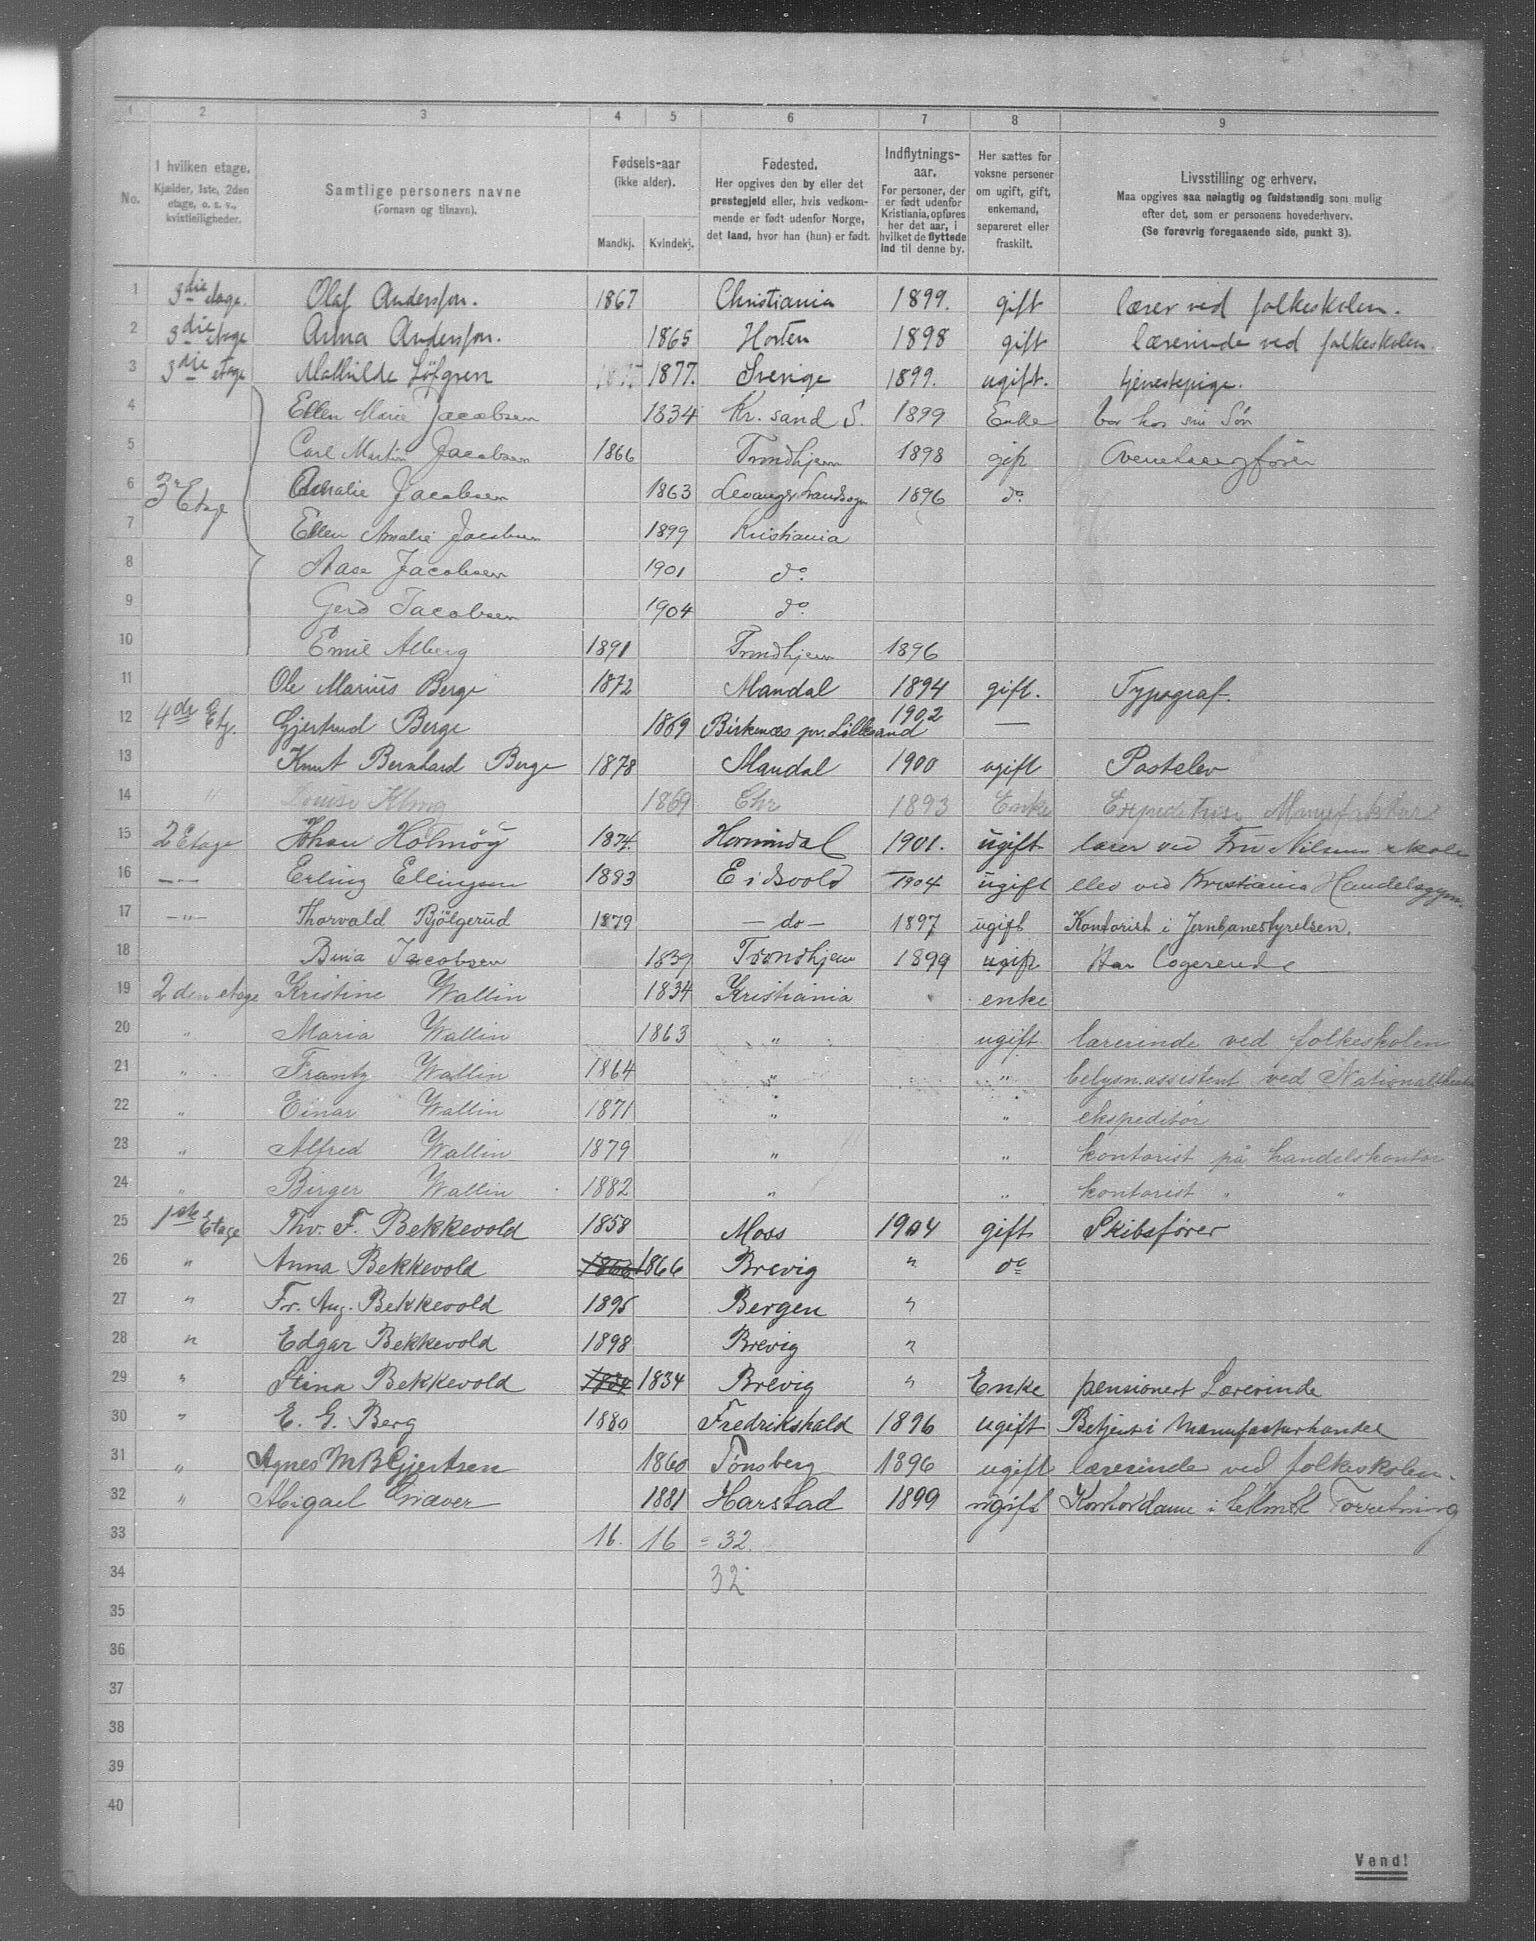 1 2 3 4 5 6 7 8 9
No.
I hvilken etage. Kjælder, 1ste, 2den etage, o. s. v., kvistleiligheder.
Samtlige personers navne (Fornavn og tilnavn).
Fødsels-aar (ikke alder).
Mandkj. Kvindekj.
Fødested. Her opgives den by eller det prestegjeld eller, hvis vedkommende er født udenfor Norge, det land, hvor han (hun) er født.
Indflytnings-aar. For personer, der er født udenfor Kristiania, opføres her det aar, i hvilket de flyttede ind til denne by.
Her sættes for voksne personer om ugift, gift, enkemand, separeret eller fraskilt.
Livsstilling og erhverv. Maa opgives saa nøiagtig og fuldstændig som mulig efter det, som er personens hovederhverv. (Se forøvrig foregaaende side, punkt 3).
1 3die etage. Olaf Anderssen. 1867 Christiania 1899. gift lærer ved folkeskolen.
2 3die etage Anna Anderssen. 1865 Horten 1898 gift lærerinde ved folkeskolen.
3 3die etage Mathilde Löfgren 1877. Sverige 1899. ugift. tjenestepige.
4 Ellen Marie Jacobsen 1834 Kr. sand S. 1899 Enke bor hos sin Søn
5 Carl Martin Jacobsen 1866 Trondhjem 1898 gift
6 3 Etage Amalie Jacobsen 1863 Levanger Landsogn 1896 do
7 Ellen Amalie Jacobsen 1899 Kristiania
8 Aase Jacobsen 1901 do.
9 Gerd Jacobsen 1904 do.
10 Emil Alberg 1891 Trondhjem 1896
11 Ole Marius Berge 1872 Mandal 1894 gift. Typograf.
12 4de Etg. Gjertrud Berge 1869 Birkenæs pr. Lillesand 1902 —
13 Knut Bernhard Berge 1878 Mandal 1900 ugift Postelev
14 " Louise Kling 1869 Chr 1893 Enke
15 2 Etage Johan Holmöy 1874. Hornindal 1901. ugift lærer ved Fru Nilsens skole
16 —"— Erling Ellingsen 1883 Eidsvold 1904 ugift elev ved Kristiania Handelsgym.
17 —"— Thorvald Bjölgerud 1879 — do — 1897 ugift Kontorist i Jernbanestyrelsen.
18 Bina Jacobsen 1839 Trondhjem 1899 ugift Har Logerende
19 2den etage Kristine Wallin 1834 Kristiania enke
20 " Maria Wallin 1863 " ugift lærerinde ved folkeskolen
21 " Frantz Wallin 1864 " " belysn.assistent ved Nationaltheatret
22 " Einar Wallin 1871 " " ekspeditør
23 " Alfred Wallin 1879 " " kontorist på handelskontor
24 " Birger Wallin 1882 " " kontorist " "
25 1ste Etage Thv. F. Bekkevold 1858 Moss 1904 gift Skibsfører
26 " Anna Bekkevold 1866 1866 Brevig " do
27 " Fr. Aug. Bekkevold 1895 Bergen "
28 " Edgar Bekkevold 1898 Brevig "
29 " Stina Bekkevold 1834 1834 Brevig " Enke pensionert Lærerinde
30 " E. G. Berg 1880 Fredrikshald 1896 ugift Betjent i Manufacturhandel
31 " Agnes M B Gjertsen 1860 Tønsberg 1896 ugift lærerinde ved folkeskolen.
32 " Abigael Giæver 1881 Harstad 1899 ugift Kontordame i Forretning
33 16. 16 = 32.
34 32
35
36
37
38
39
40
Vend!